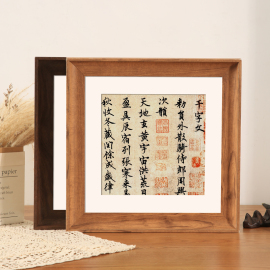 千字文
勑員外散騎侍郎周興
次韻
天地玄黃宇宙洪荒日
盈昃辰宿列張寒來
秋收冬藏閏餘成歲律